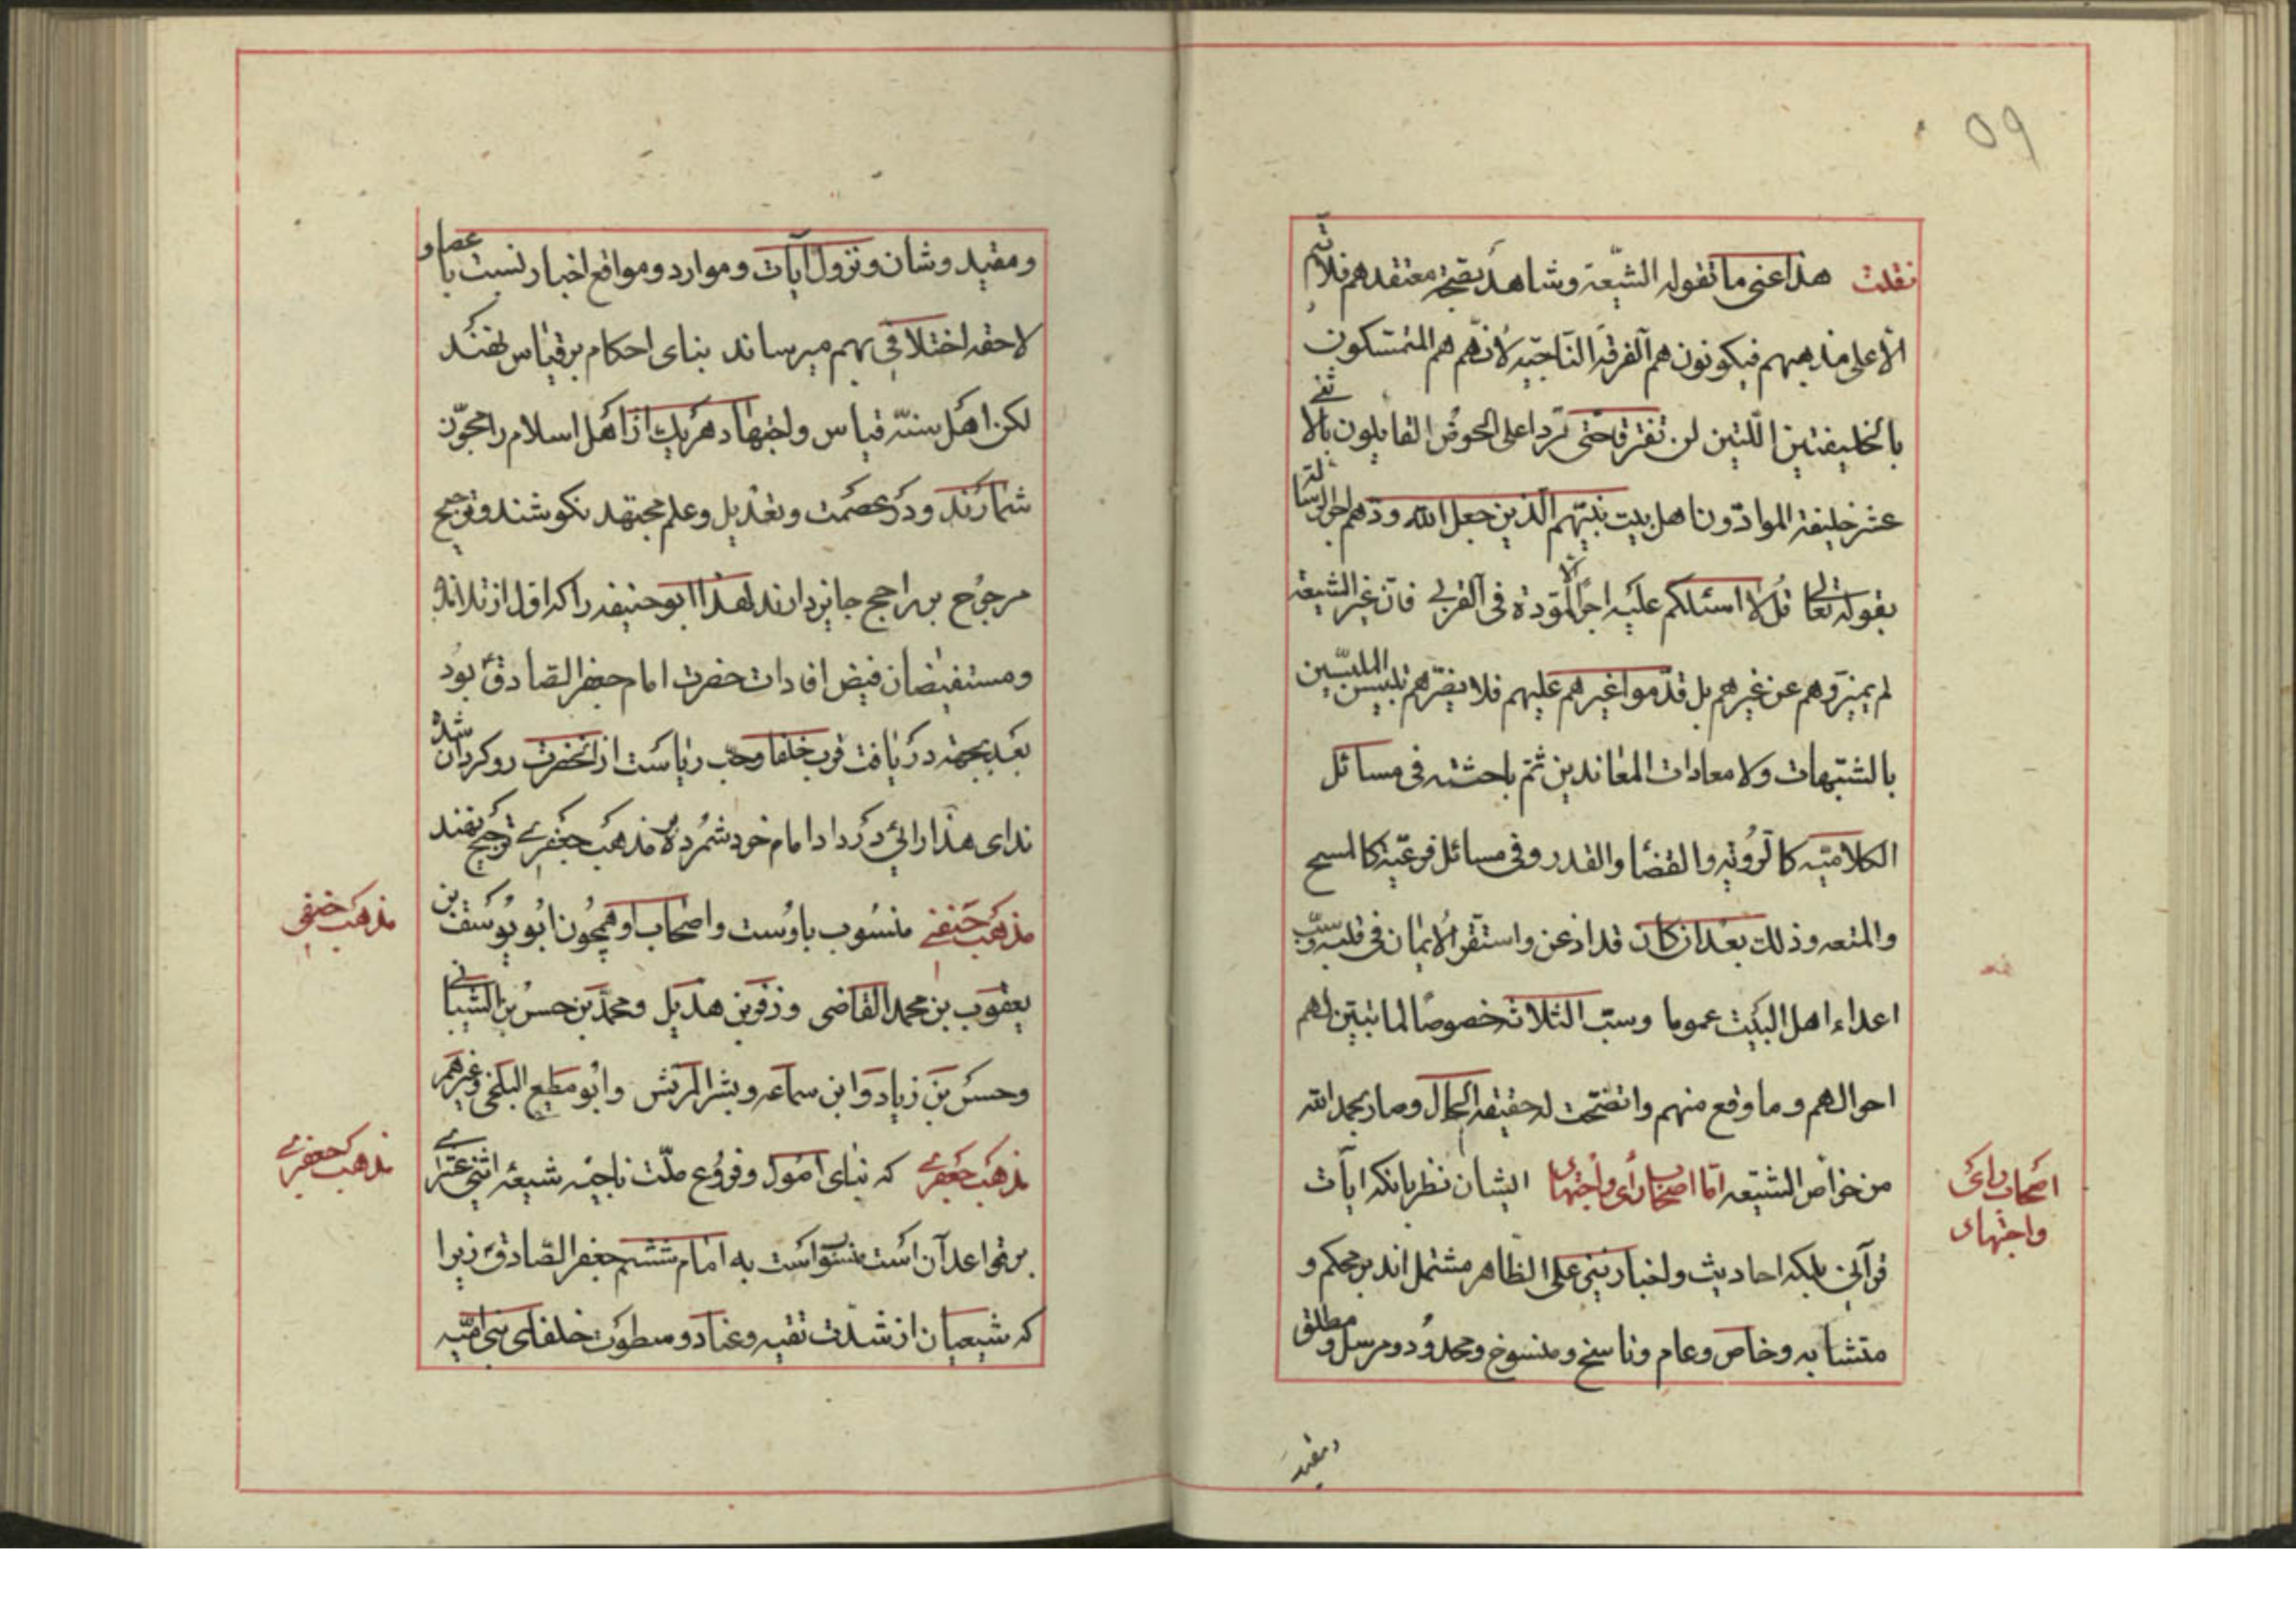 ۵۹
فقلت هذا عنی ما تقوله الشیّعة وشاهد بصحّة معتقدهم فلا تتم
الّا علی مذهبهم فیکونون هم الفرقه النّاجیّه لانّهم هم المتمسّکون
بالخلیفتین اللّتین لن تفترقا حتّی تردا علی الحوض القایلون بالاثنی
عشر خلیفة الموادّون اهل بیت نبیّهم الّذین جعل اللّه ودّهم اجر الرسالة
بقوله تعالی قل لا اسئلکم علیه اجرًا الّا المودّة فی القربی فانّ غیر الشیعه
لم یمیزوهم عن غیرهم بل قدّموا غیرهم علیهم فلا یضرّهم تلبیس الملبسّین
بالشّبهات ولا معادات المعاندین ثمّ باحثته فی مسائل
الکلامیّه کالرّویه والقضا والقدر وفی مسائل فرعیّة کالمسح
والمتعه وذلک بعد ان کان قد اذعن واستقرّ الایمان فی قلبه وسبّ
اعداء اهل البیت عموما وسبّ الثلاثه خصوصًا لما تبیّن لهم
احوالهم وما وقع منهم واتّضحت له حقیقة الحال وصار بحمد اللّه
من خواص الشیّعه امّا اصحاب رأی واجتهاد ایشان نظر بانکه ایات
قرآنی بلکه احادیث واخبار نبی علی الظاهر مشتمل اند بر محکم و
متشابه وخاص وعام وناسخ ومنسوخ ومحدود ومرسل و مطلق
ومقید
اصحاب رای
واجتهاد
ومقید وشان ونزول آیات وموارد ومواقع اخبار نسبت باعصار و
لاحقه اختلافی بهم میرساند بنای احکام بر قیاس نهند
لکن اهل سنّه قیاس واجتهاد هر یک از اهل اسلام را مجوّز
شمارند ودر عصمت وتعدیل وعلم مجتهد نکوشند وترجیح
مرجوح بر راجح جایز دارند لهذا ابو حنیفه را که اوّل از تلامذه
ومستفیضان فیض افادات حضرت امام جعفر الصّادق بود
بعد بجهة دریافت قرب خلفا وحب ریاست از انحضرت روکردان شده
ندای هذا رائی در داد امام خود شمرده بر مذهب جعفری ترجیح نهند
مذهب حنفی منسوب باوست واصحاب او همچون ابو یوسف بن
یعقوب بن محمد القاضی وزفر بن هذیل ومحمّد بن حسن بن الشیبانی
وحسن بن زیاد وابن سماعه وبشر المریش وابو مطیع البلخی وغیرهم
مذهب جعفری که بنای اصول وفروع ملّت ناجیه شیعهٔ اثنی عشری
بر قواعد آن است منسوب است به امام ششم جعفر الصّادق زیرا
که شیعیان از شدت تقیه وعناد وسطوت خلفای بنی امیّه
مذهب حنفی
مذهب جعفری